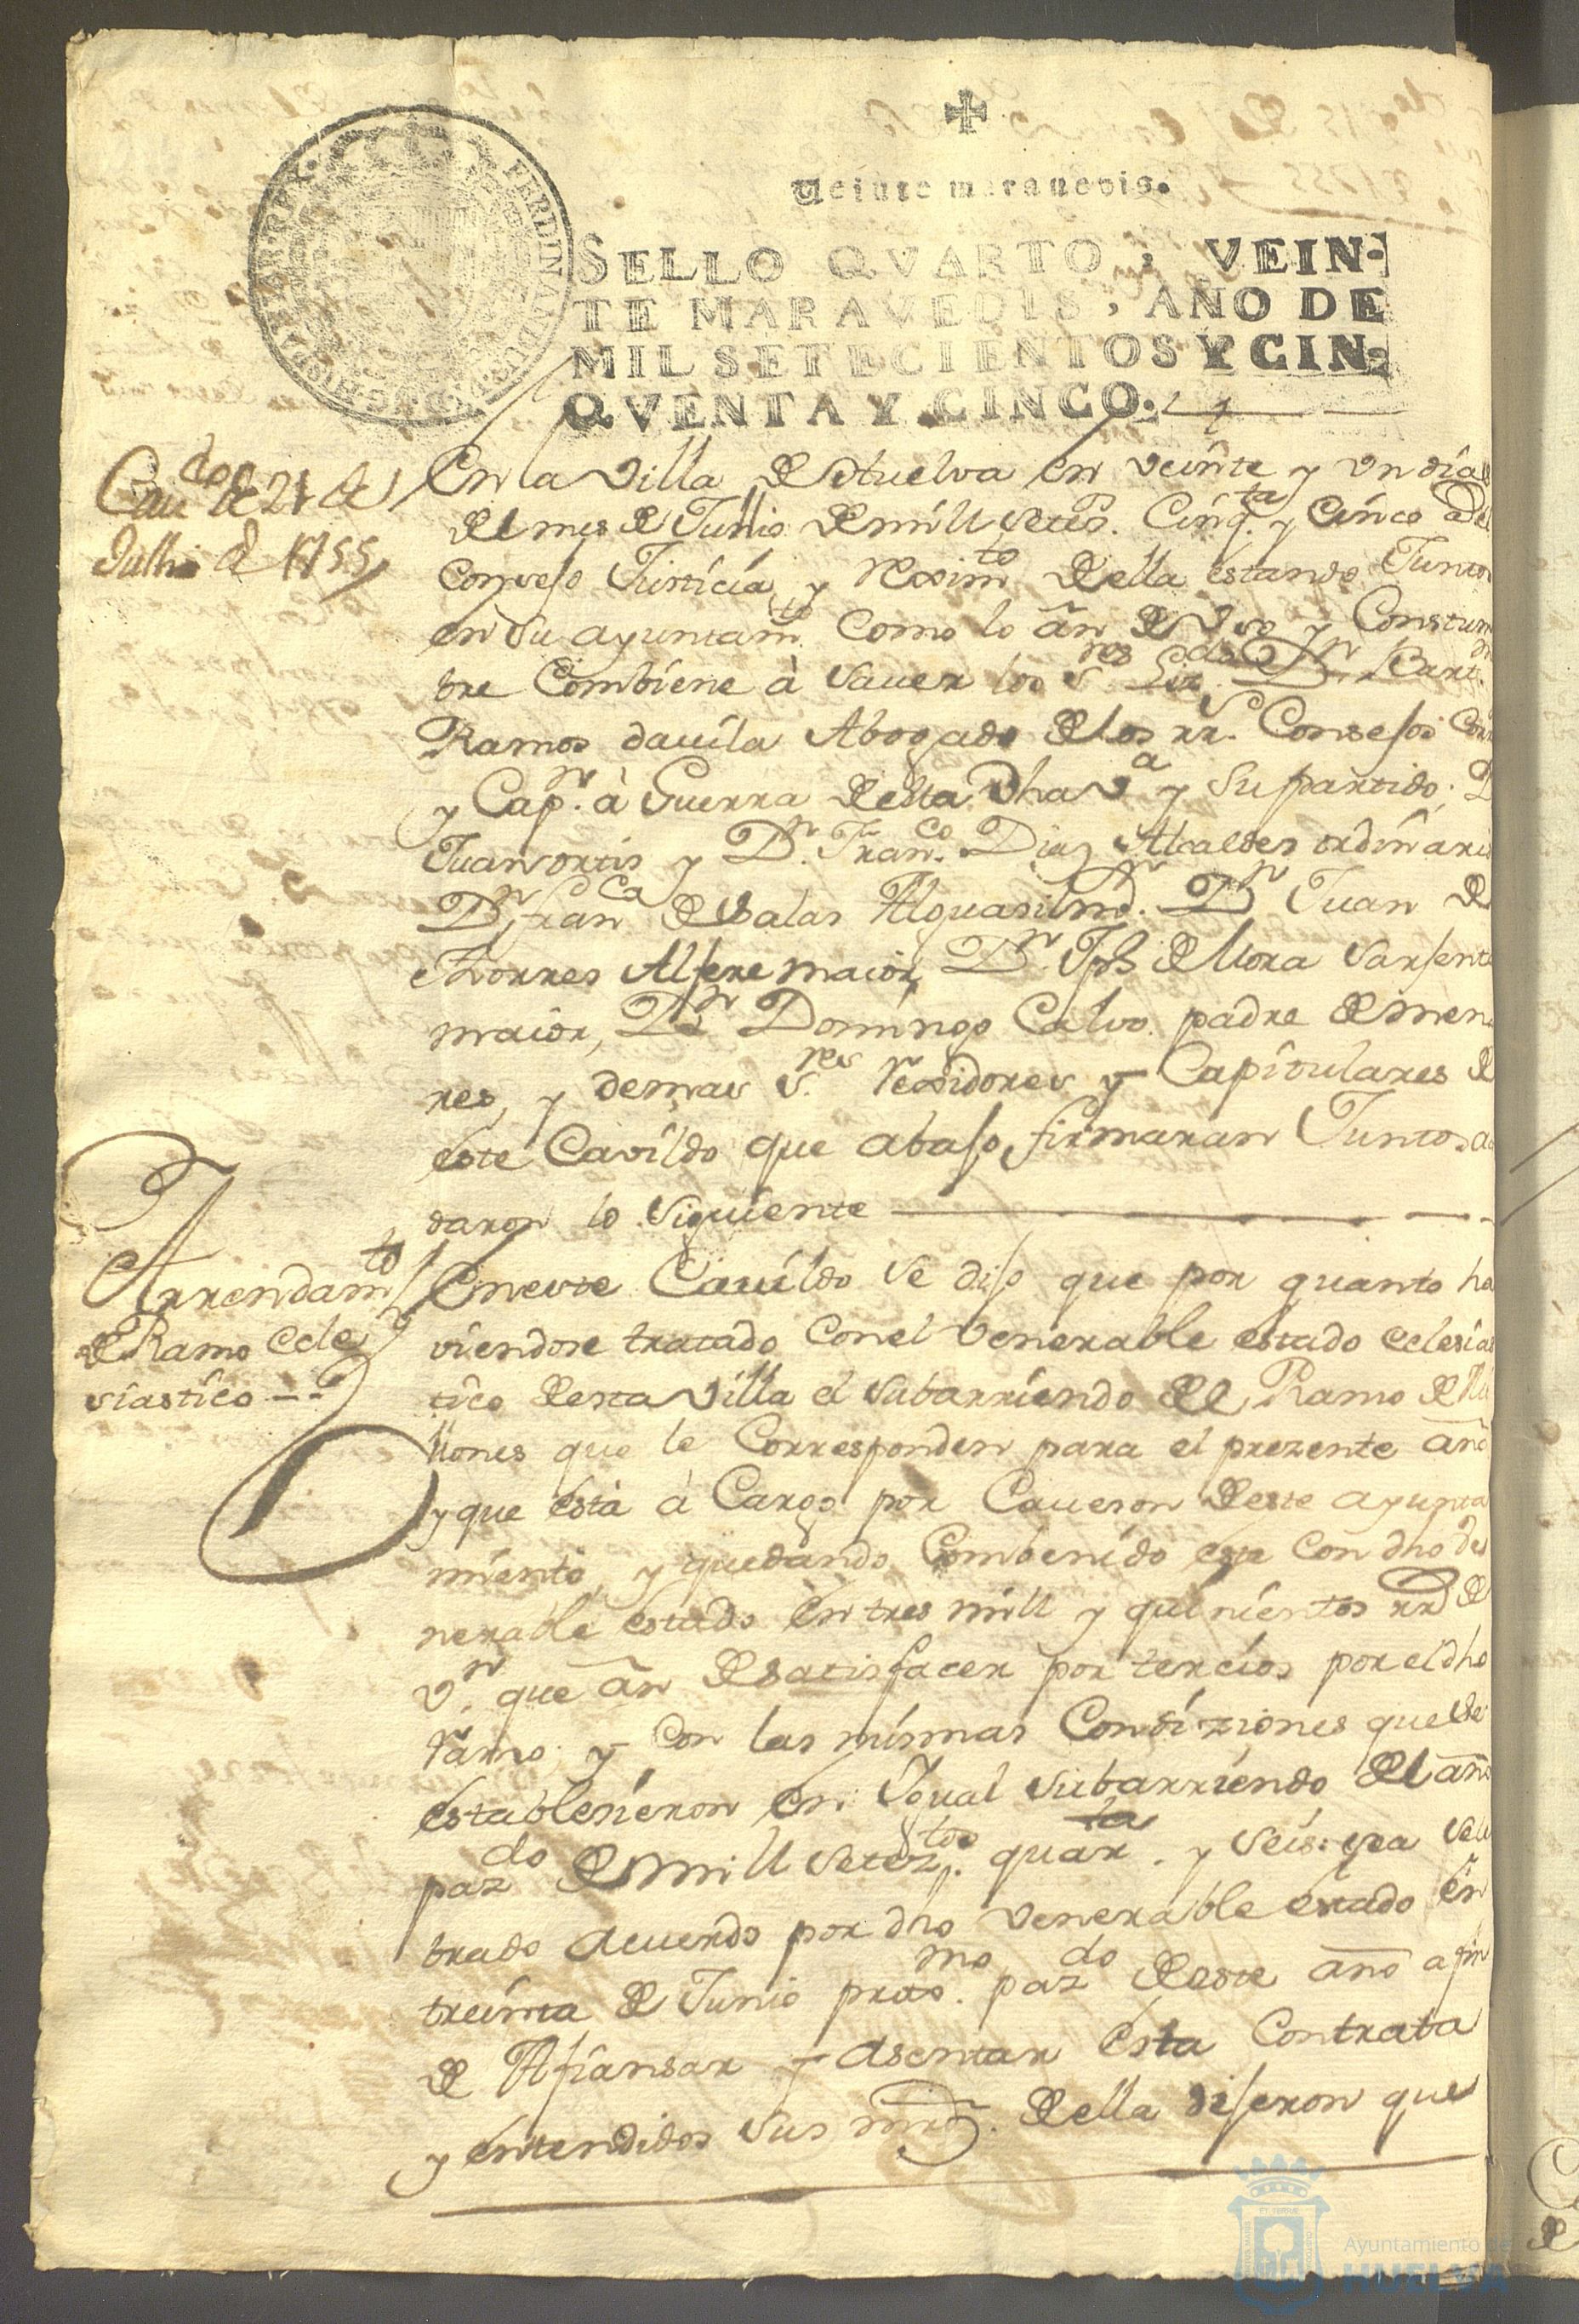 Veinte maravedis.
SELLO QVARTO, VEIN-
TE MARAVEDIS, AÑO DE
MIL SETECIENTOS Y CIN-
QVENTA Y CINCO.
Caudo de 21 de
Julho de 1755
En la Villa de Huelva en veinte y un dias
del mes de Junio de mill setes. Cinqta y Cinco a del
Consejo Justicia y Reximto della estando Juntos
en su ayuntamto como lo an de Uso y Constum
bre Combiene à sauer los Sres Lizdo Dn
Ramos dauila Abogado de los rrs. Consejos Corr
y Capn. à Guerra desta dha Va y su partido; D
Juan ortis y Dn. Franco. Dias Alcaldes ordinari
Dn franca de Salas Alguasil mr. Dn Juan de
Thorres Alfere maior, Dn. Jph de Mora Sarjente
maior, Dn Domingo Calvo padre de meno
res, y demas Sres Rexidores y Capitulares de
este Cavildo que abajo firmaran Juntos a
daron lo siguiente
Arrendamto
de Ramo Ecle
siastico
En este Cauildo se dijo que por quanto ha
viendose tratado con el Venerable estado eclesias
tico desta Villa el subarriendo del Ramo de Mi
llones que le Corresponden para el prezente año
y que està à Cargo por Caueson deste ayunta
miento, y quedando Combenido este con dho Ve
nerable estado en tres mill y quinientos rrs de
Vn. que an de satisfacer por tercios por el dho
ramo y con las mismas Condiziones que se
establesieron en Igual subarriendo del año
pazdo de mill seteztos. quarta. y seis
brado acuerdo por dho Venerable estado en
treinta de Junio proxmo. pazdo deste año a fin
de Afiansar y asentar esta Contrata
y entendidos sus mrds. della dijeron que
Ayuntamiento de
HUELVA